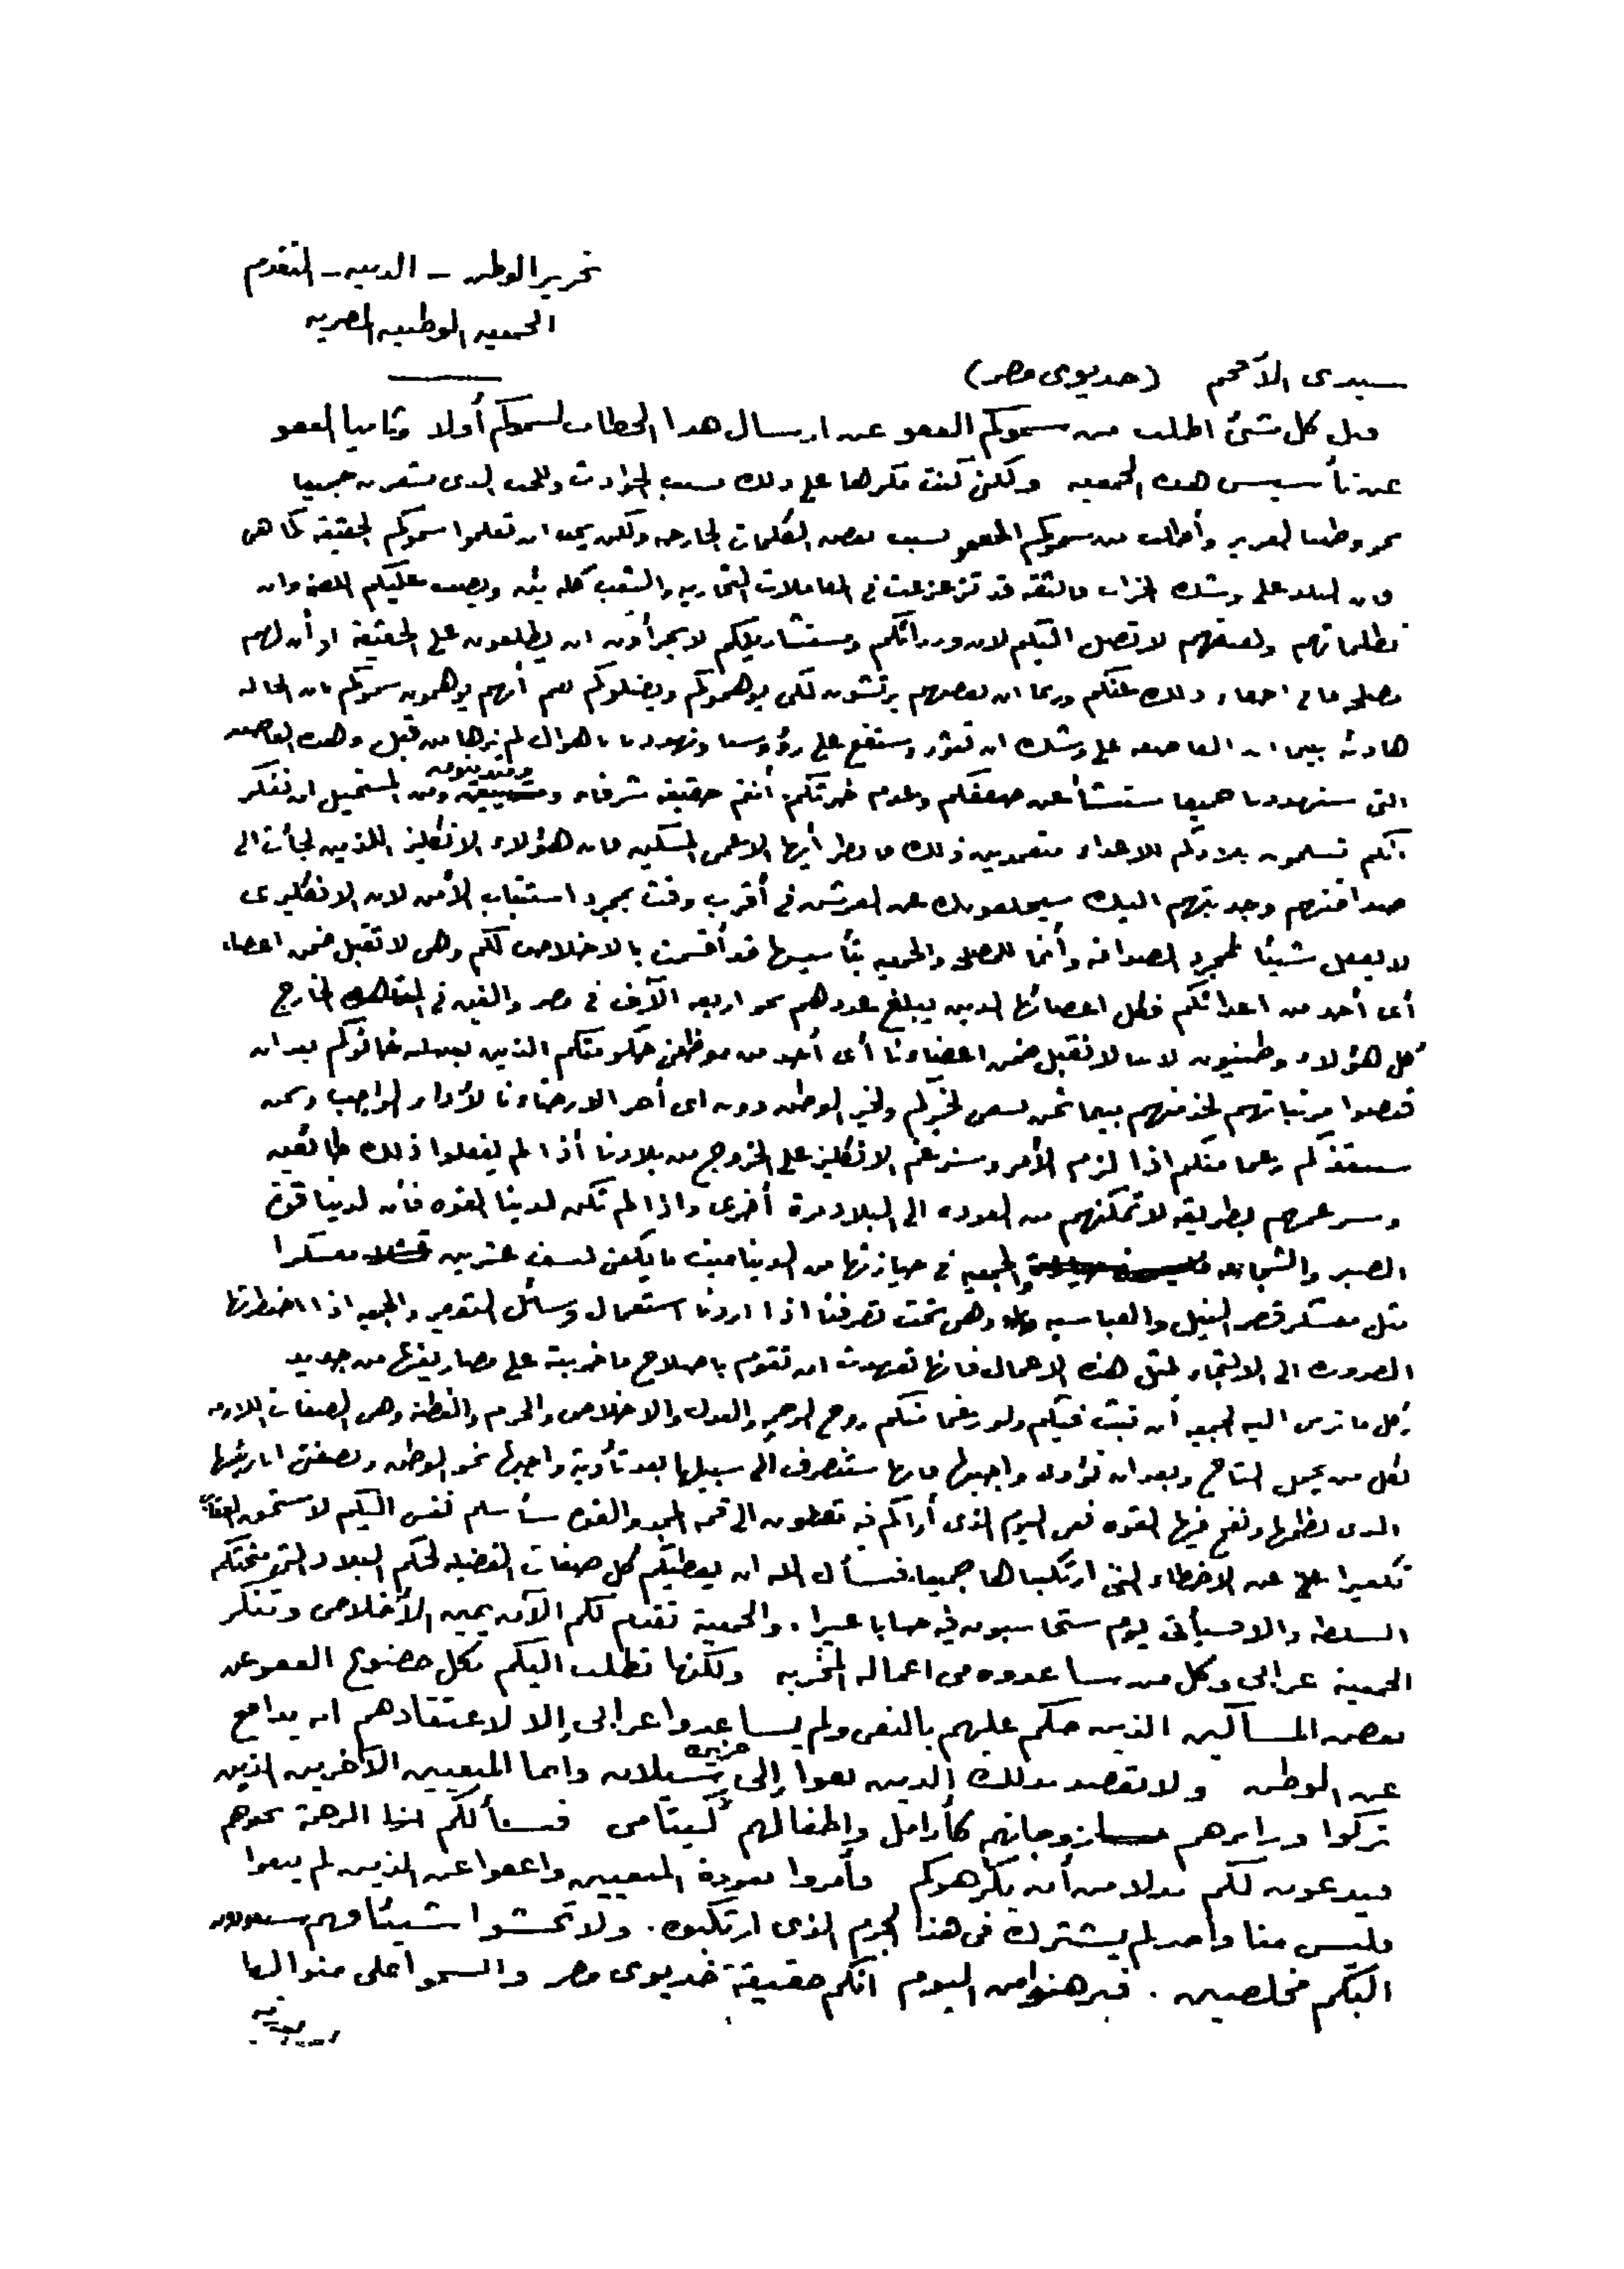 تحرير الوطن - الدين - التقدم
الجمعيه الوطنيه المصريه
سيدى الأفخم (خديوى مصر)
قبل كل شئ اطلب من سموكم العفو عن ارسال هذا الخطاب لسموكم أولا وثانيا العفو
عن تأسيس هذه الجمعيه ولكنى كنت مكرها على ذلك بسبب الحوادث وللحب الذى نشعر به جميعا
نحو وطننا العزيز وأطلب من سموكم العفو بسبب بعض الكلمات الجارحه ولكن يجب ان تعلموا سموكم الحقيقة كما هى
فان البلد على وشك الخراب فالثقه قد تزعزعت فى المعاملات التجاريه والشعب كله يئن ويصب عليكم اللعنه وان
تظلماتهم لا تصل اليكم لان وزرائكم ومستشاريكم لا يجرأون ان يطلعون على الحقيقة او أن لهم
مصلحه ما فى اخفاء ذلك عنكم وربما ان بعضهم يرتشون لكى يوهموكم ويضلوكم نعم أنهم يوهمون سموكم بان الحاله
هادئه بينما ان العاصفه على وشك ان تثور وستقع على رؤوسنا وتهددنا باهوال لم نرها من قبل وهذه العاصفه
التى ستهددنا جميعا ستنشأ عن ضعفكم وعدم خبرتكم أنتم حقيقة شرفاء ومتدينون ومن المستحيل ان نفكر
أنكم تسلمون بلادكم للاعداء متعمدين ذلك فانظر أيها الاعمى المسكين فان هؤلاء الانكليز اللذين لجأت الى
صداقتهم وجذبتهم اليك سيخلعونك عن العرش فى أقرب وقت بمجرد استتباب الأمن لان الانكليزى
لا يعمل شيئا لمجرد الصداقه وأنما للمصلحه والجمعيه بتأسيسها قد أقسمت بالاخلاص لكم وهى لا تقبل ضمن اعضاء
أى أحد من اعدائكم فكل اعضائها الذين يبلغ عددهم نحو اربعه الآف فى مصر والفين فى الخارج
كل هؤلاء وطنيون لاننا لا نقبل ضمن اعضاءنا أى أحد من موظفى حكومتكم الذين بعد ان
قبضوا مرتباتهم لخدمتهم بينما نحن نسعى لخيركم ولخير الوطن دون اى أجر الا رضاءنا لأداء الواجب ونحن
سننقذكم رغما منكم اذا لزم الأمر وسنرغم الانكليز على الخروج من بلادنا أذا لم يفعلوا ذلك طائعين
وسنرغمهم بطريقه لا تمكنهم من العوده الى البلاد مرة أخرى واذا لم تكن لدينا القوه فأن لدينا قوة
الصبر والشجاعه والجمعيه فى حيازتها من الديناميت ما يكفى لنسف عشرين معسكرا
مثل معسكر قصر النيل والعباسيه وهى تحت تصرفنا اذا اردنا استعمال وسائل التدمير والجمعيه اذا اضطرتها
الضروره الى الالتجاء لمثل هذه الاعمال فانها تعهدت ان تقوم باصلاح ما خربته على مصاريفها من جديد
وكل ما ترمى اليه الجمعيه أن تبث فيكم ولو رغما منكم روح الرحمه والعدل والاخلاص والحزم والفطنه وهى الصفات اللازمه
لكل من يحمل التاج وبعد ان تؤدى واجبها فانها ستنصرف الى سبيلها بعد تأدية واجبها نحو الوطن وبصفتى انا رئيسها
الذى نظمها ونفخ فيها القوه ففى اليوم الذى أراكم فيه تصلون الى قمه المجد والقوه سأسلم نفسى اليكم لاستحق العقاب
تكفيرا عن الاخطاء التى ارتكبناها جميعا، فنسأل الله ان يعطيكم كل صفات الفضيله لحكم البلاد التى منحتكم
السلطه والا فسيأتى يوم ستحاسبون فيه حسابا عسيرا. والجمعية تقدم لكم الآن يمين الأخلاص وتنكر
الجمعية عرابى وكل من ساعدوه فى اعماله المخربه ولكنها تطلب اليكم بكل خضوع العفو عن
بعض المساكين الذين حكم عليهم بالنفى ولم يساعدوا عرابى إلا لاعتقادهم انه يدافع
عن الوطن ولا نقصد بذلك الذين نفوا إلى جزيره سيلان وانما المنفيين الآخرين الذين
تركوا زوجاتهم كأرامل وإطفالهم كيتامى فنسألكم الرحمة نحوهم
فيدعون لكم بدلا من أن يكرهوكم فأمروا بعودة المنفيين واعفوا عن الذين لم ينفوا
فليس منا واحد لم يشترك فى هذا الجرم الذى ارتكبوه. ولا تخشوا شيئا فهم سيعودون
اليكم مخلصين. فبرهنوا من اليوم انكم حقيقة خديوى مصر والسموا على منوالها